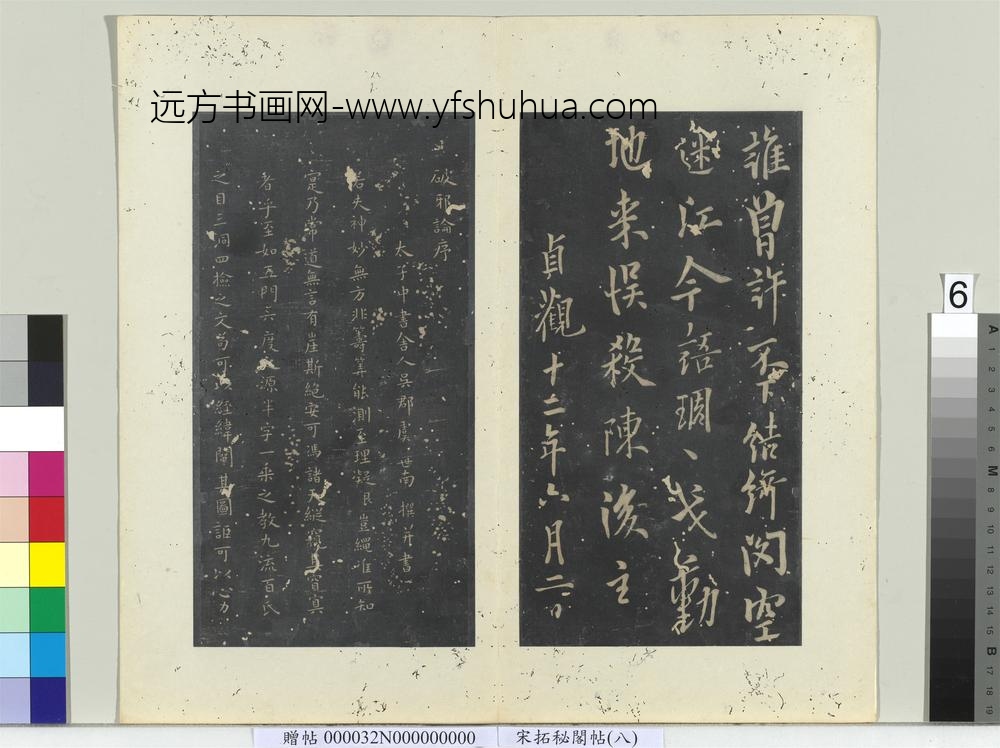 远方书画网-www.yfshuhua.com
誰曾許不下結綺閣空
迷江令語琱、戈動
地来悮殺陳後主
貞觀十二年六月二日
破邪論序
太子中書舍人吳郡虞世南撰并書
若夫神妙無方非籌筭能測至理凝邈豈繩准所知
寔乃常道無言有崖斯絕安可憑諸天縱窺其窅冥
者乎至如五門六度之源半字一乘之教九流百氏
之目三洞四檢之文苟可以經緯闡其圖詎可以心力
6
A
1
2
3
4
5
6
M
8
9
10
11
12
13
14
15
B
17
18
19
贈帖 000032N000000000 宋拓秘閣帖(八)